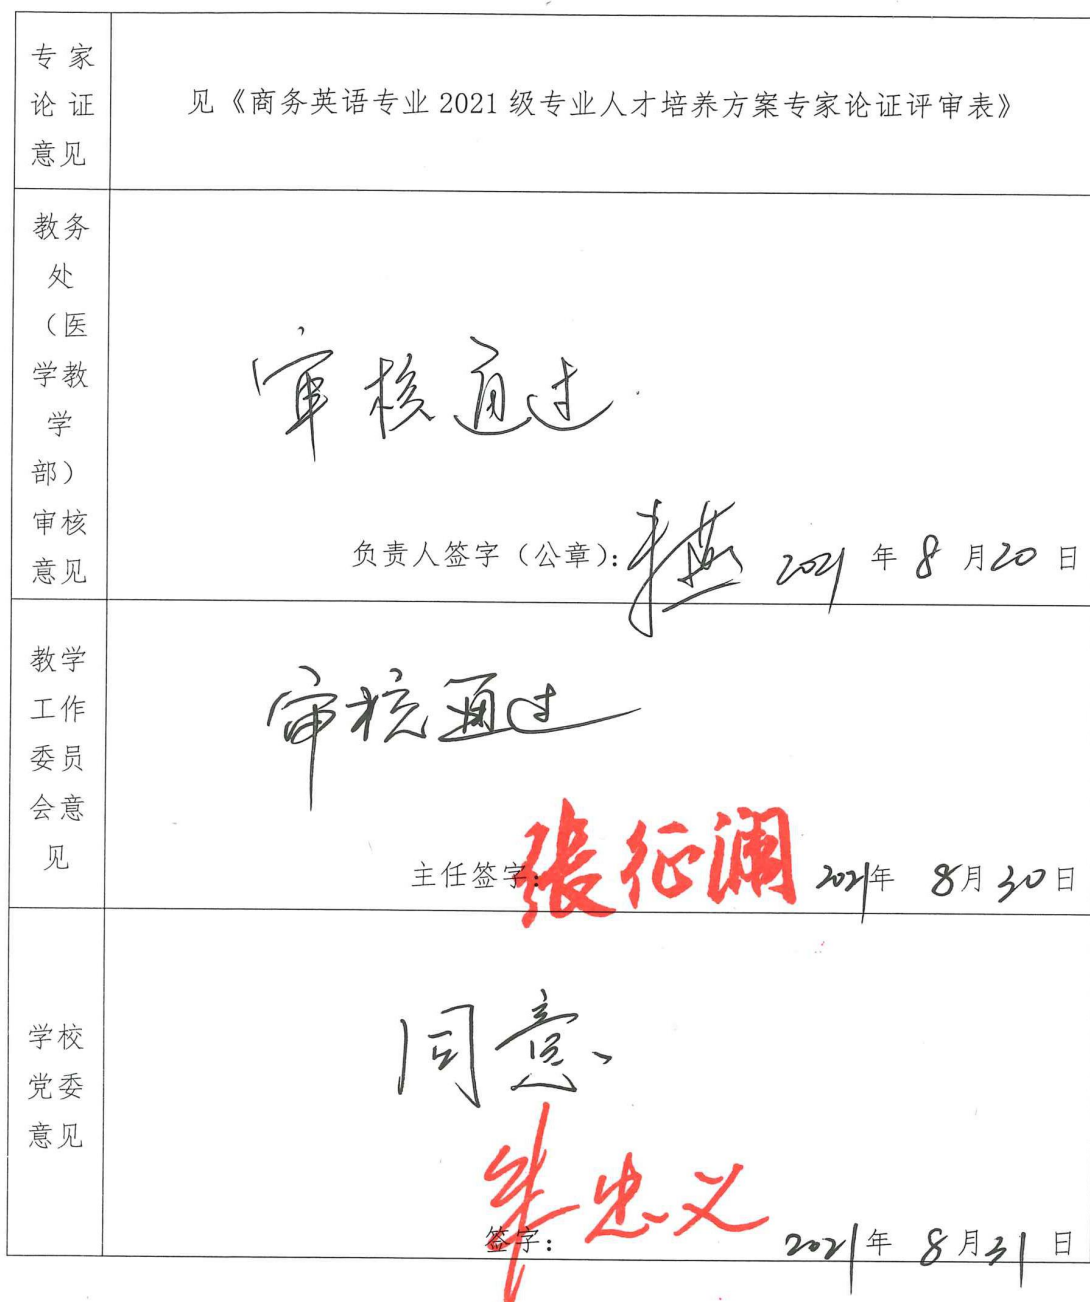 专家
论证
意见
见《商务英语专业 2021 级专业人才培养方案专家论证评审表》
教务
处
（医
学教
学
部）
审核
意见
审核通过
负责人签字（公章）： 2021 年 8 月 20 日
教学
工作
委员
会意
见
审核通过
主任签字：张征澜 2021年 8月30日
学校
党委
意见
同意
签字：朱忠义 2021年 8月31日